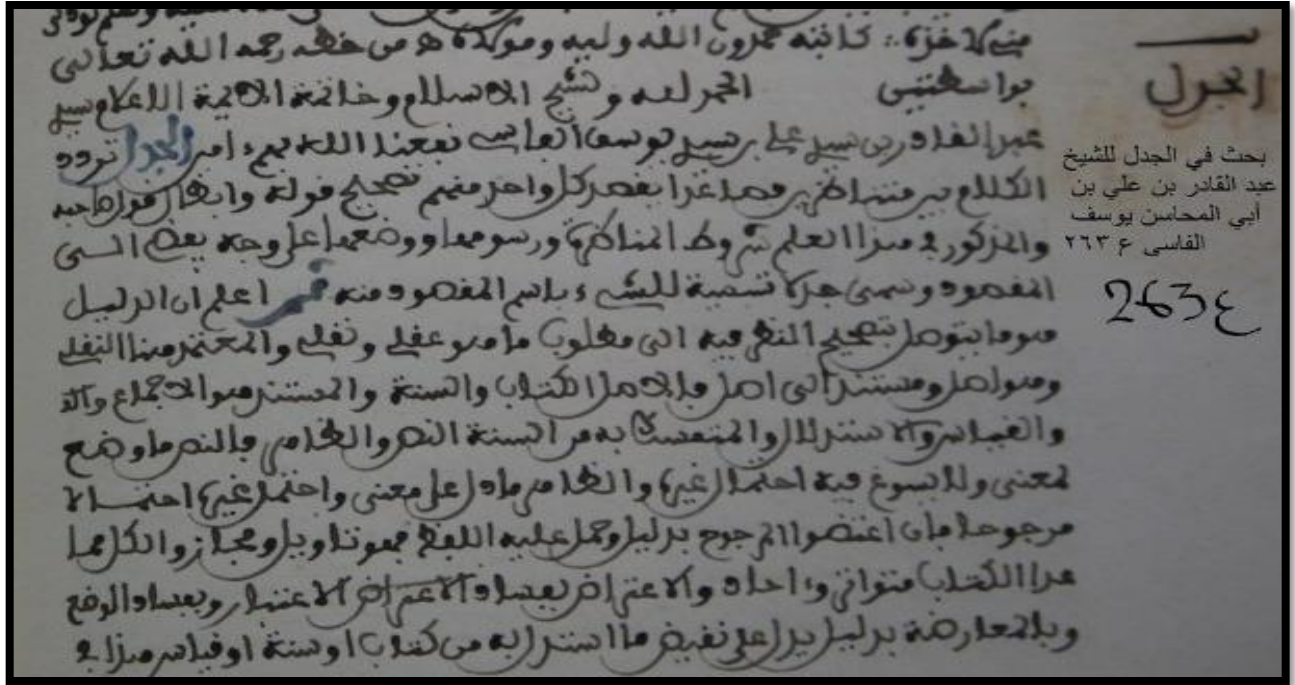 كاتبه حمدون الله وليه ومولاه ه من خطه رحمه الله تعالى
بواسطتين الحمد لله ولشيخ الاسلام وخاتمة الايمة الاعلام سيدي
عبد القادر بن سيدي علي بن سيدي يوسف الفاسي نفعنا الله بهم ءامين الجدل تردد
الكلام بين متناظرين فصاعدا يقصد كل واحد منهم تصحيح قوله وابطال قول صاحبه
والمذكور في هذا العلم شروط المناظرة ورسومها ووضعها على وجه يفضي الى
المقصود وسمي جدلا تسمية للشيء باسم المقصود منه ثم اعلم ان الدليل
هو ما يتوصل بصحيح النظر فيه الى مطلوب ما هو عقلي ونقلي والمعتمد هنا النقلي
وهو اصل ومستند الى اصل فالاصل الكتاب والسنة والمستند هو الاجماع
والقياس والاستدلال والمتمسك به من السنة النص والظاهر فالنص ما وضع
لمعنى ولا يسوغ فيه احتمال غيره والظاهر ما دل على معنى واحتمل غيره احتمالا
مرجوحا فان اعتضد المرجوح بدليل وحمل عليه اللفظ فهو تاويل ومجاز والكل مما
عدا الكتاب متواتر وءاحاد والاعتراض بفساد الاعتبار وبفساد الوضع
وبالمعارضة بدليل يدل على نقيض ما استدل به من كتاب او سنة او قياس
الجدل
بحث في الجدل للشيخ
عبد القادر بن علي بن
أبي المحاسن يوسف
الفاسي ع ٢٦٣
263 ع